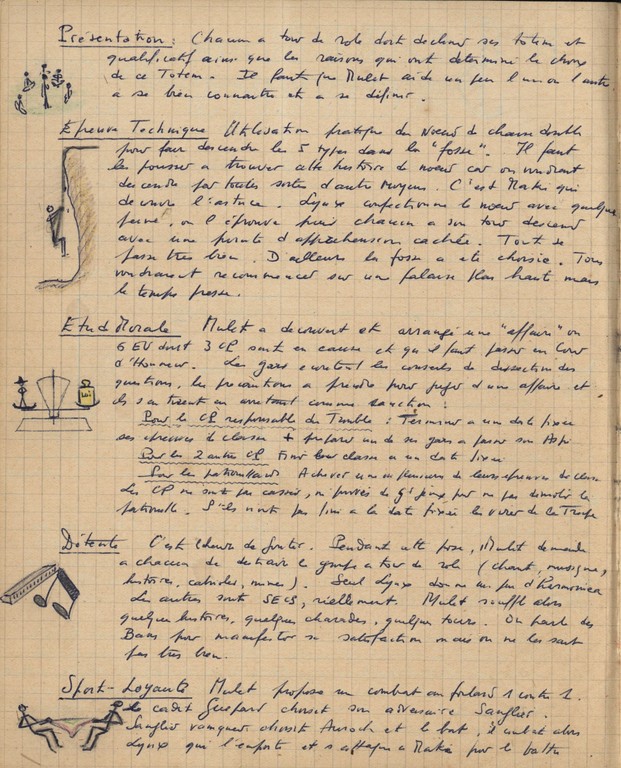 Présentation : Chacun a tour de role doit declarer ses totem et
qualificatif ainsi que les raisons qui ont determiné le choix
de ce Totem. Il faut que Mulet aide un peu l'un ou l'autre
a se bien connaitre et a se définir.
Epreuve Technique Utilisation pratique du Noeud de chaise double
pour faire descendre les 5 types dans la "fosse". Il faut
les pousser a trouver cette histoire de noeud car on voudrait
descendre par toutes sortes d'autre moyens. C'est Maki qui
découvre l'astuce. Lynx confectionne le noeud avec quelque
peine, on l'éprouve puis chacun a son tour descend
avec une pointe d'appréhension cachée. Tout se
passe très bien. D'ailleurs la fosse a été choisie. Tous
voudraient recommencer sur une falaise plus haute mais
le temps presse.
Etud Morale Mulet a decouvert et arrangé une "affaire" ou
6 EU dont 3 CP sont en cause et qu'il faut passer en Cour
d'Honneur. Les gars ecoutent les conseils de discretion des
questions, les precautions a prendre pour juger d'une affaire et
ils s'en tirent en arretant comme sanction :
Pour le CP responsable du Trouble : Terminer a une date fixée
ses epreuves de classe + preparer un de ses gars a passer son Aspi
Pour les 2 autres CP Finir leur classe a une date fixée
Pour les patrouillards Achever une ou plusieurs de leurs epreuves de classe
Les CP ne sont pas cassés, ni privés de Gd jeux pour ne pas demolir la
patrouille. S'ils n'ont pas fini a la date fixée les virer de la Troupe
Détente C'est l'heure du Gouter. Pendant cette pose, Mulet demande
a chacun de distraire le groupe a tour de role (chant, musique,
histoire, cabrioles, mimes). Seul Lynx donne un peu d'Harmonica
Les autres sont SECS, réellement. Mulet souffle alors
quelques histoires, quelques charades, quelques tours. On parle des
Bans pour manifester sa satisfaction mais on ne les sait
pas très bien.
Sport - Loyauté Mulet propose un combat au foulard 1 contre 1.
le cadet Guépard choisit son adversaire Sanglier.
Sanglier vainqueur choisit Auroch et le bat, il combat alors
Lynx qui l'emporte et s'attaque a Maki pour le battre